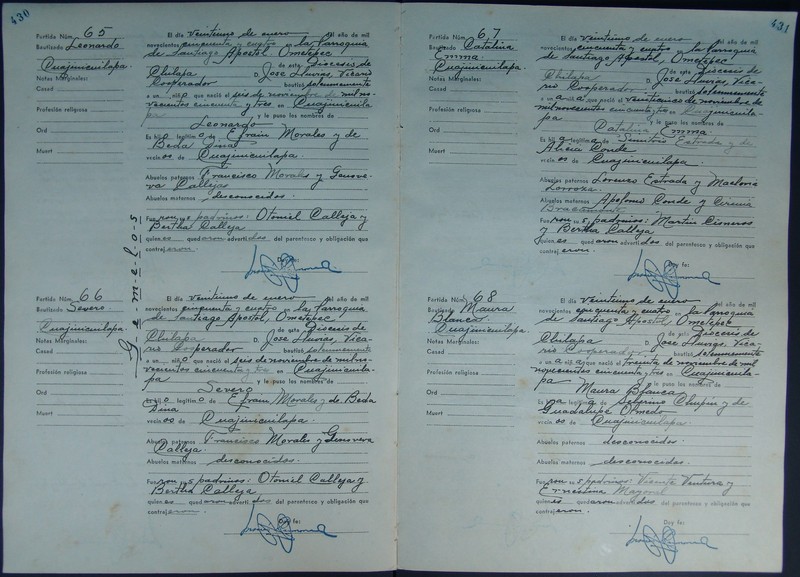 430
Partida Núm. 65
Bautizado Leonardo
Cuajinicuilapa.
Notas Marginales:
Casad
Profesión religiosa
Ord
Muert
El día veintiuno de enero del año de mil
novecientos cincuenta y cuatro en la Parroquia
de Santiago Apostol, Ometepec
de esta Diocesis de
Chilapa D. Jose Lluvias, Vicario
Cooperador bautizó solemnemente
a un niño que nació el seis de noviembre de mil no-
vecientos cincuenta y tres en Cuajinicuila-
pa y le puso los nombres de
Leonardo
Es hijo legitimo de Efrain Morales y de
Beda Dina
vecinos de Cuajinicuilapa.
Abuelos paternos Francisco Morales y Genove-
va Callejas
Abuelos maternos desconocidos.
Fueron sus padrinos: Otoniel Calleja y
Bertha Calleja
quienes quedaron advertidos del parentesco y obligación que
contrajeron.
Doy fe:
Gemelos
Partida Núm. 66
Bautizado Severo
Cuajinicuilapa.
Notas Marginales:
Casad
Profesión religiosa
Ord
Muert
El día veintiuno de enero del año de mil
novecientos cincuenta y cuatro en la Parroquia
de Santiago Apostol, Ometepec
de esta Diocesis de
Chilapa D. Jose Lluvias, Vica-
rio Cooperador bautizó solemnemente
a un niño que nació el seis de noviembre de mil no-
vecientos cincuenta y tres en Cuajinicuila-
pa y le puso los nombres de
Severo
Es hijo legitimo de Efrain Morales y de Beda
Dina
vecinos de Cuajinicuilapa.
Abuelos paternos Francisco Morales y Genoveva
Calleja.
Abuelos maternos desconocidos.
Fueron sus padrinos: Otoniel Calleja y
Bertha Calleja
quienes quedaron advertidos del parentesco y obligación que
contrajeron.
Doy fe:
431
Partida Núm. 67
Bautizado Catalina
Emma
Cuajinicuilapa.
Notas Marginales:
Casad
Profesión religiosa
Ord
Muert
El día veintiuno de enero del año de mil
novecientos cincuenta y cuatro en la Parroquia
de Santiago Apostol, Ometepec
de esta Diocesis de
Chilapa D. Jose Lluvias, Vica-
rio Cooperador. bautizó solemnemente
a una niña que nació el veinticinco de noviembre de
mil novecientos cincuenta y tres en Cuajinicuila-
pa y le puso los nombres de
Catalina Emma.
Es hija legitima de Demetrio Estrada y de
Alicia Conde
vecinos de Cuajinicuilapa.
Abuelos paternos Lorenzo Estrada y
Abuelos maternos Apolonio Conde y
Fueron sus padrinos: Martin Cisneros
y Bertha Calleja
quienes quedaron advertidos del parentesco y obligación que
contrajeron.
Doy fe:
Partida Núm. 68
Bautizado Maura
Blanca
Cuajinicuilapa.
Notas Marginales:
Casad
Profesión religiosa
Ord
Muert
El día veintiuno de enero del año de mil
novecientos cincuenta y cuatro en la Parroquia
de Santiago Apostol Ometepec
de esta Diocesis de
Chilapa D. Jose Lluvias, Vica-
rio Cooperador bautizó solemnemente
a una niña que nació el treinta de noviembre de mil
novecientos cincuenta y tres en Cuajinicuila-
pa y le puso los nombres de
Maura Blanca
Es hija legitima de Seferino Chupin y de
Guadalupe Olmedo
vecinos de Cuajinicuilapa.
Abuelos paternos desconocidos.
Abuelos maternos desconocidos.
Fueron sus padrinos: Vicente Ventura y
Ernestina Mayoral
quienes quedaron advertidos del parentesco y obligación que
contrajeron.
Doy fe: